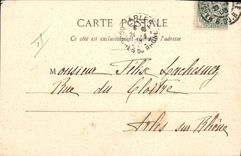 CARTE POSTALE
Ce côté est exclusivement réservé à l'adresse
Monsieur Félix
Rue du Cloître
Arles sur Rhône